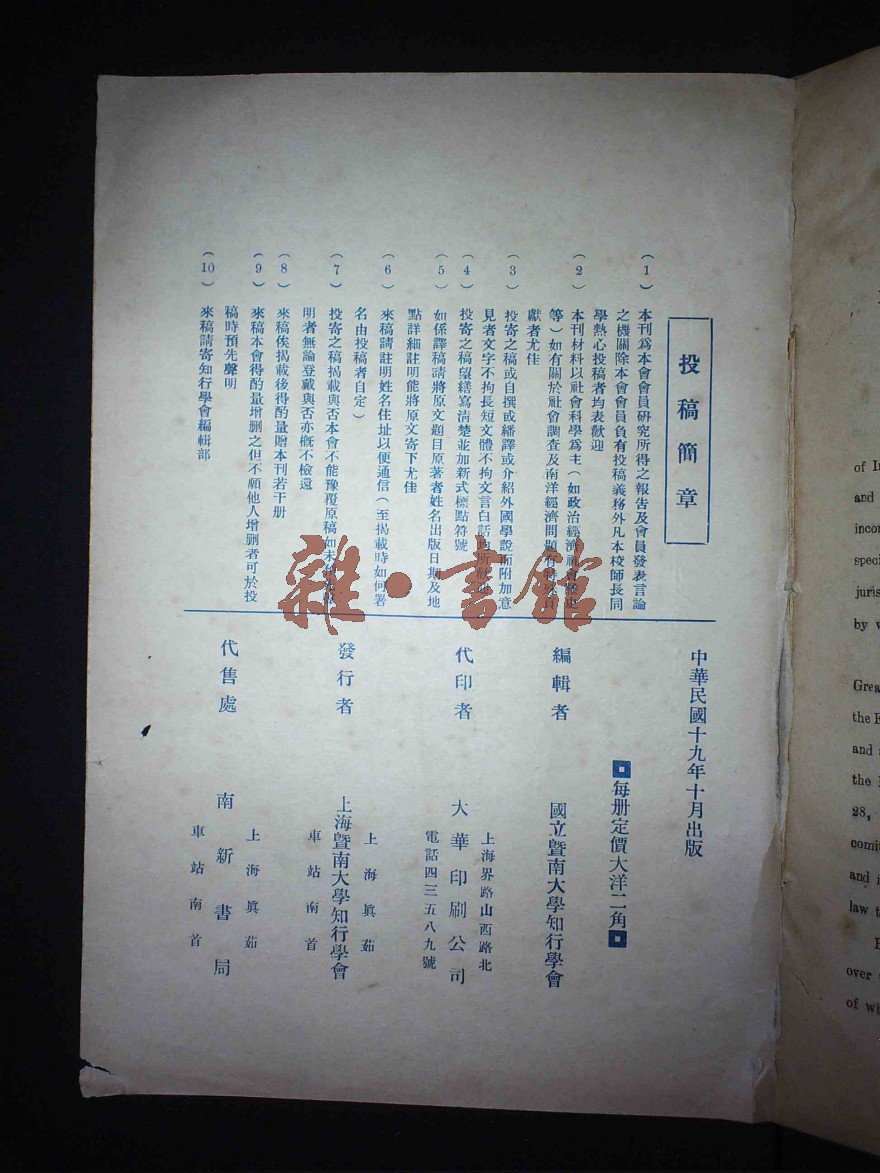 投稿簡章
（1） 本刊爲本會會員研究所得之報告及會員發表言論
之機關除本會會員負有投稿義務外凡本校師長同
學熱心投稿者均表歡迎
（2） 本刊材料以社會科學爲主（如政治經濟社會
等）如有關於社會調查及南洋經濟問題有
獻者尤佳
（3） 投寄之稿或自撰或繙譯或介紹外國學說而附加意
見者文字不拘長短文體不拘文言白話
（4） 投寄之稿望繕寫清楚並加新式標點符號
（5） 如係譯稿請將原文題目原著者姓名出版日期及地
點詳細註明能將原文寄下尤佳
（6） 來稿請註明姓名住址以便通信（至揭載時如何署
名由投稿者自定）
（7） 投寄之稿揭載與否本會不能豫覆原稿如未
明者無論登戴與否亦槪不檢還
（8） 來稿俟揭載後得酌量贈本刊若干册
（9） 來稿本會得酌量增删之但不願他人增删者可於投
稿時預先聲明
（10） 來稿請寄知行學會編輯部
中華民國十九年十月出版
每册定價大洋二角
編輯者 國立暨南大學知行學會
代印者 大華印刷公司
上海界路山西路北
電話四三五八九號
發行者 上海暨南大學知行學會
上海眞茹
車站南首
代售處 南新書局
上海眞茹
車站南首
雜·書館
of In
and
incor
speci
juris
by w
Grea
the E
and
the
28,
comit
and i
law t
over
of wh